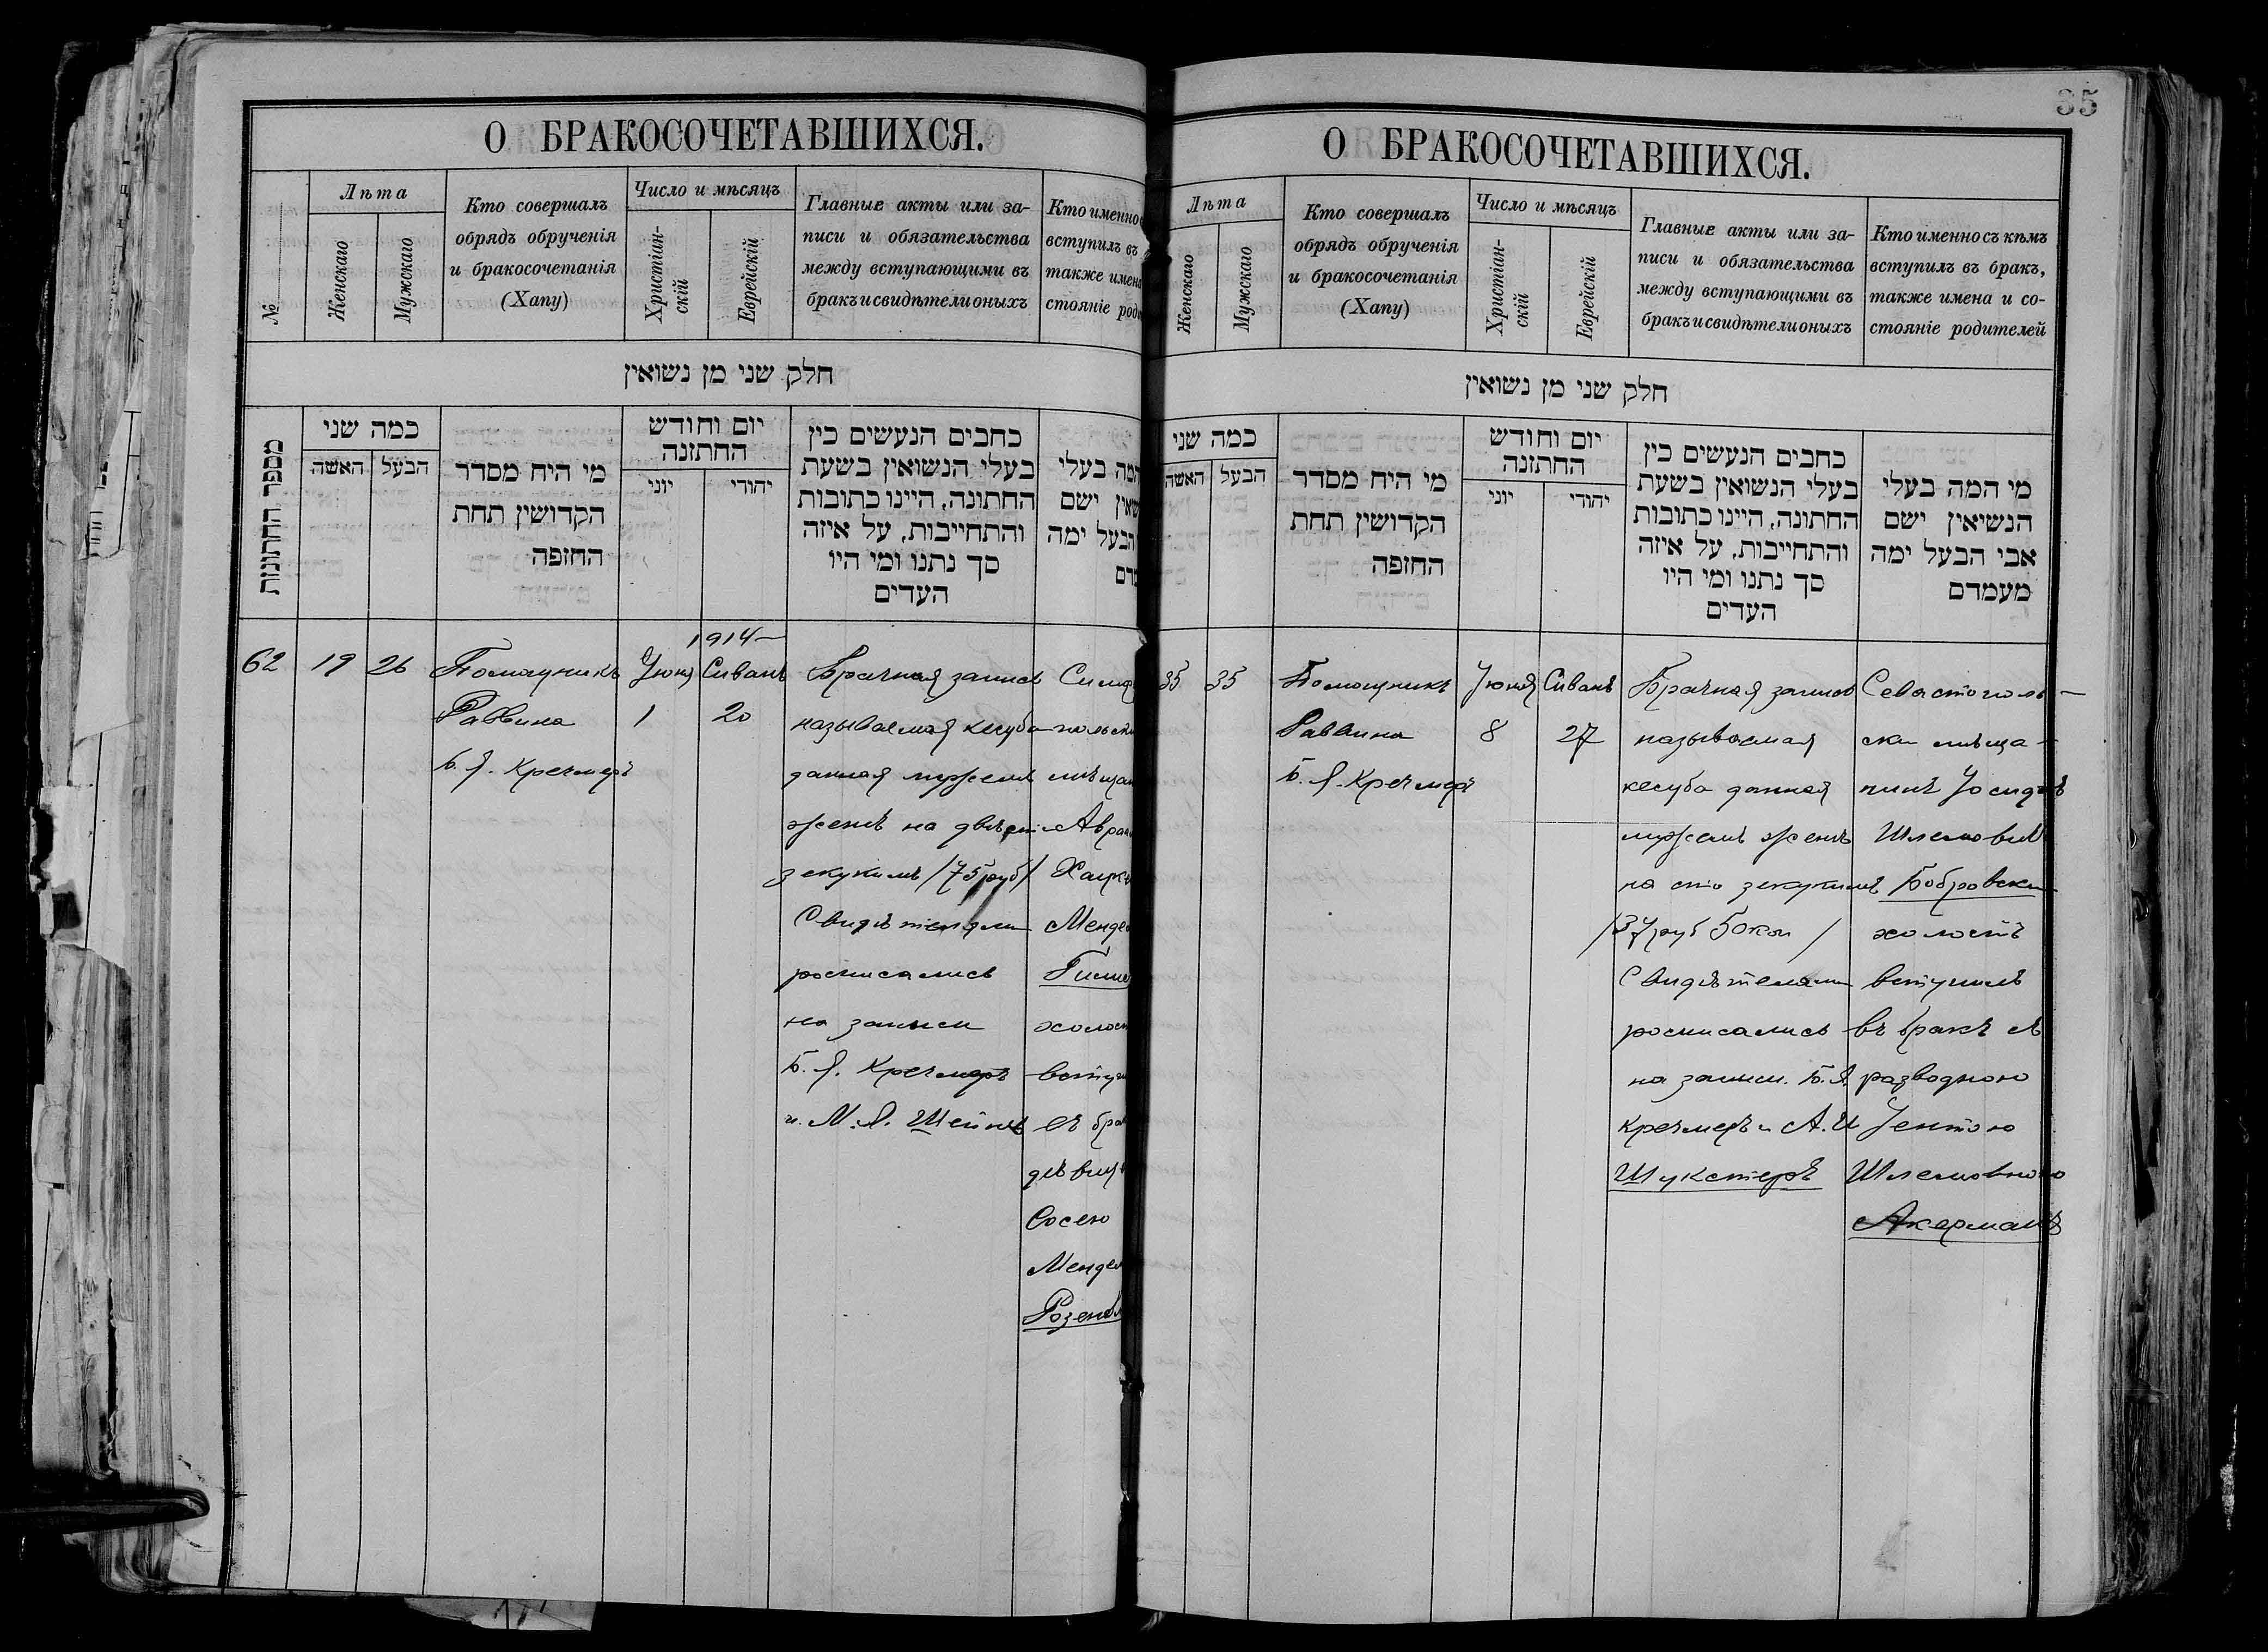 35
О БРАКОСОЧЕТАВШИХСЯ.
№
Лѣта
Женскаго
Мужскаго
Кто совершалъ
обрядъ обрученія
и бракосочетанія
(Хапу)
Число и мѣсяцъ
Христіан-
скій
Еврейскій
Главные акты или за-
писи и обязательства
между вступающими въ
бракъ и свидѣтели оныхъ
Кто именно
вступилъ въ
также имена
стояніе роди
חלק שני מן נשואין
מספר החתונות
כמה שני
האשה
הבעל
מי היח מסדר
הקדושין תחת
החזפה
יום וחודש
החתזנה
יוני
יהודי
כחבים הנעשים כין
בעלי הנשואין בשעת
החתונה, היינו כתובות
והתחייבות, על איזה
סך נתנו ומי היו
העדים
המה בעלי
שאין ישם
הבעל ימה
מדם
1914
62
19
26
Помощникъ
Раввина
Б. Я. Кречмеръ
Іюня
1
Сиванъ
20
Брачная запись
называемая кесуба
данная мужемъ
женѣ на двѣсти
зекукимъ /75 руб/
Свидѣтелями
росписались
на записи
Б. Я. Кречмеръ
и М. Я. Шейнъ
Симф
польск
мѣщан
Авра
Менде
холост
вступ
въ бра
дѣвиц
Сосею
Мендел
Розенб
О БРАКОСОЧЕТАВШИХСЯ.
Лѣта
Женскаго
Мужскаго
Кто совершалъ
обрядъ обрученія
и бракосочетанія
(Хапу)
Число и мѣсяцъ
Христіан-
скій
Еврейскій
Главные акты или за-
писи и обязательства
между вступающими въ
бракъ и свидѣтели оныхъ
Кто именно съ кѣмъ
вступилъ въ бракъ,
также имена и со-
стояніе родителей
חלק שני מן נשואין
כמה שני
האשה
הבעל
מי היח מסדר
הקדושין תחת
החזפה
יום וחודש
החתזנה
יוני
יהודי
כחבים הנעשים כין
בעלי הנשואין בשעת
החתונה, היינו כתובות
והתחייבות, על איזה
סך נתנו ומי היו
העדים
מי המה בעלי
הנשיאין ישם
אבי הבעל ימה
מעמדם
35
35
Помощникъ
Раввина
Б. Я. Кречмеръ
Іюня
8
Сиванъ
27
Брачная запись
называемая
кесуба данная
мужемъ женѣ
на сто зекукимъ
/37 руб 50 коп/
Свидѣтелями
росписались
на записи. Б. Я.
Кречмеръ и А. И
Шукстеръ
Севастополь-
ски мѣща-
нинъ Іосифъ
Шлемовичъ
Бобровски
холостъ
вступилъ
въ бракъ съ
разводною
Іентою
Шлемовною
Акерманъ